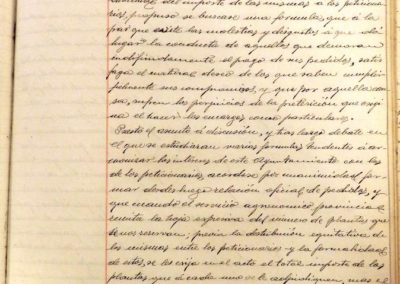 del importe de las mismas a los peticiona-
rios, propuso se buscase una formula, que á la
par que evite las molestias y disgustos á que dá
lugar la conducta de aquellos que demoran
indefinidamente el pago de sus pedidos, satis-
faga el natural deseo de los que saben cumplir
fielmente sus compromisos, y que por aquella cau-
sa, sufren los perjuicios de la preterición que origi-
na el hacer los encargos como particulares.
Puesto el asunto á discusión, y tras largo debate en
el que se estudiaron varias formulas tendentes á ar-
monizar los intereses de este Ayuntamiento con los
de los peticionarios, acordose por unanimidad for-
mar desde luego relación oficial de pedidos, y
que cuando el servicio agronomico provincial
remita la hoja expresiva del número de plantas que
se nos reservan, previa la distribución equitativa de
las mismas entre los peticionarios y la formalidad
de estos, se les exija en el acto el total importe de las
plantas que á cada uno se le adjudiquen, mas el